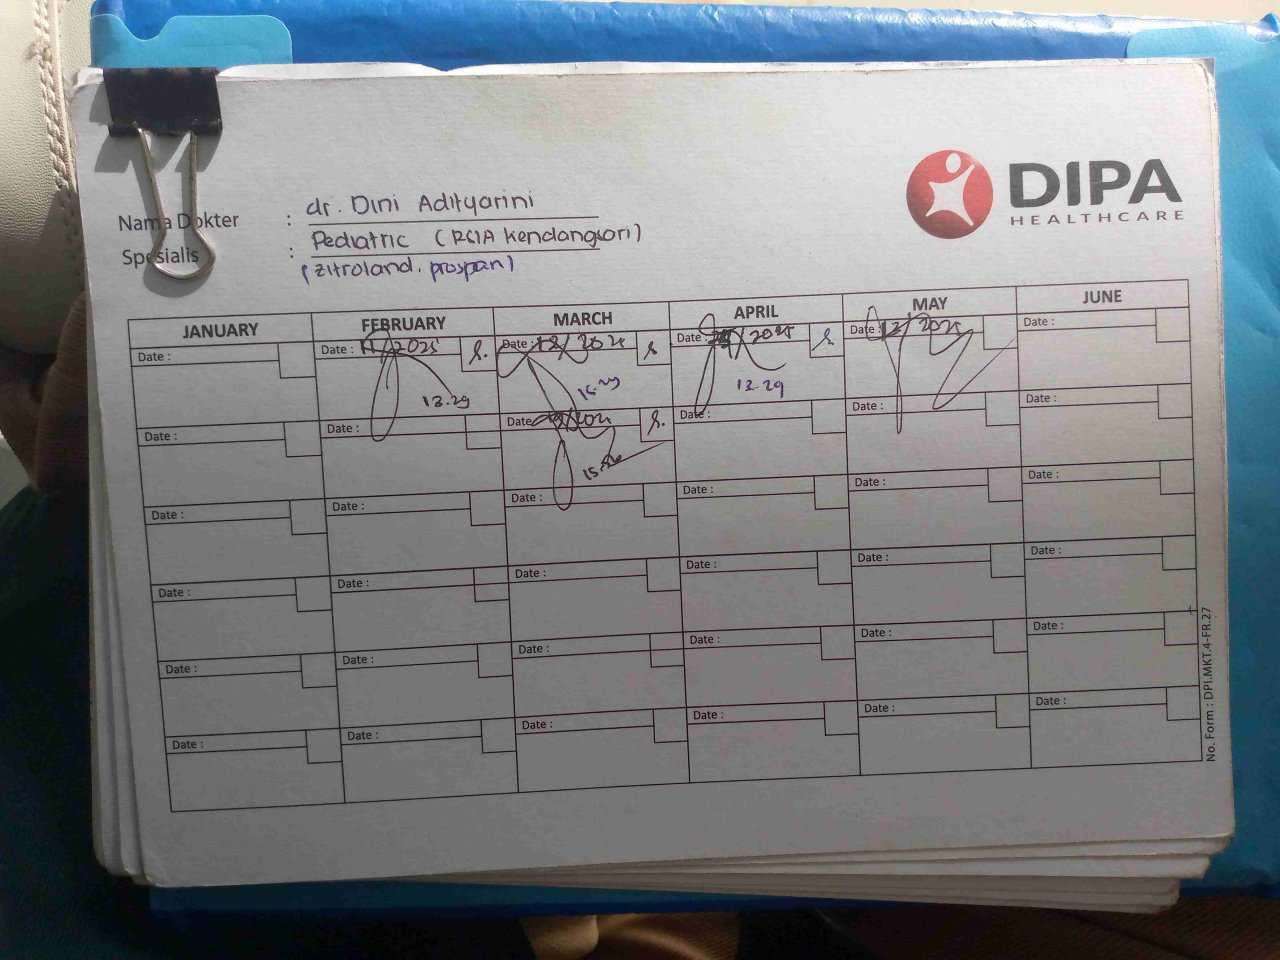 DIPA
HEALTHCARE
Nama Dokter : dr. Dini Adityarini
Spesialis : Pediatric (RSIA Kendangsari)
(Zitroland, prospan)
JANUARY FEBRUARY MARCH APRIL MAY JUNE
Date : Date : 11/2025 S. Date : S Date : /2025 S. Date : 12/2025 Date :
13.29 15.29 13.29
Date : Date : Date : S. Date : Date : Date :
Date : Date : Date : Date : Date : Date :
Date : Date : Date : Date : Date : Date :
Date : Date : Date : Date : Date : Date :
Date : Date : Date : Date : Date : Date :
No. Form : DPI.MKT.4-FR.27